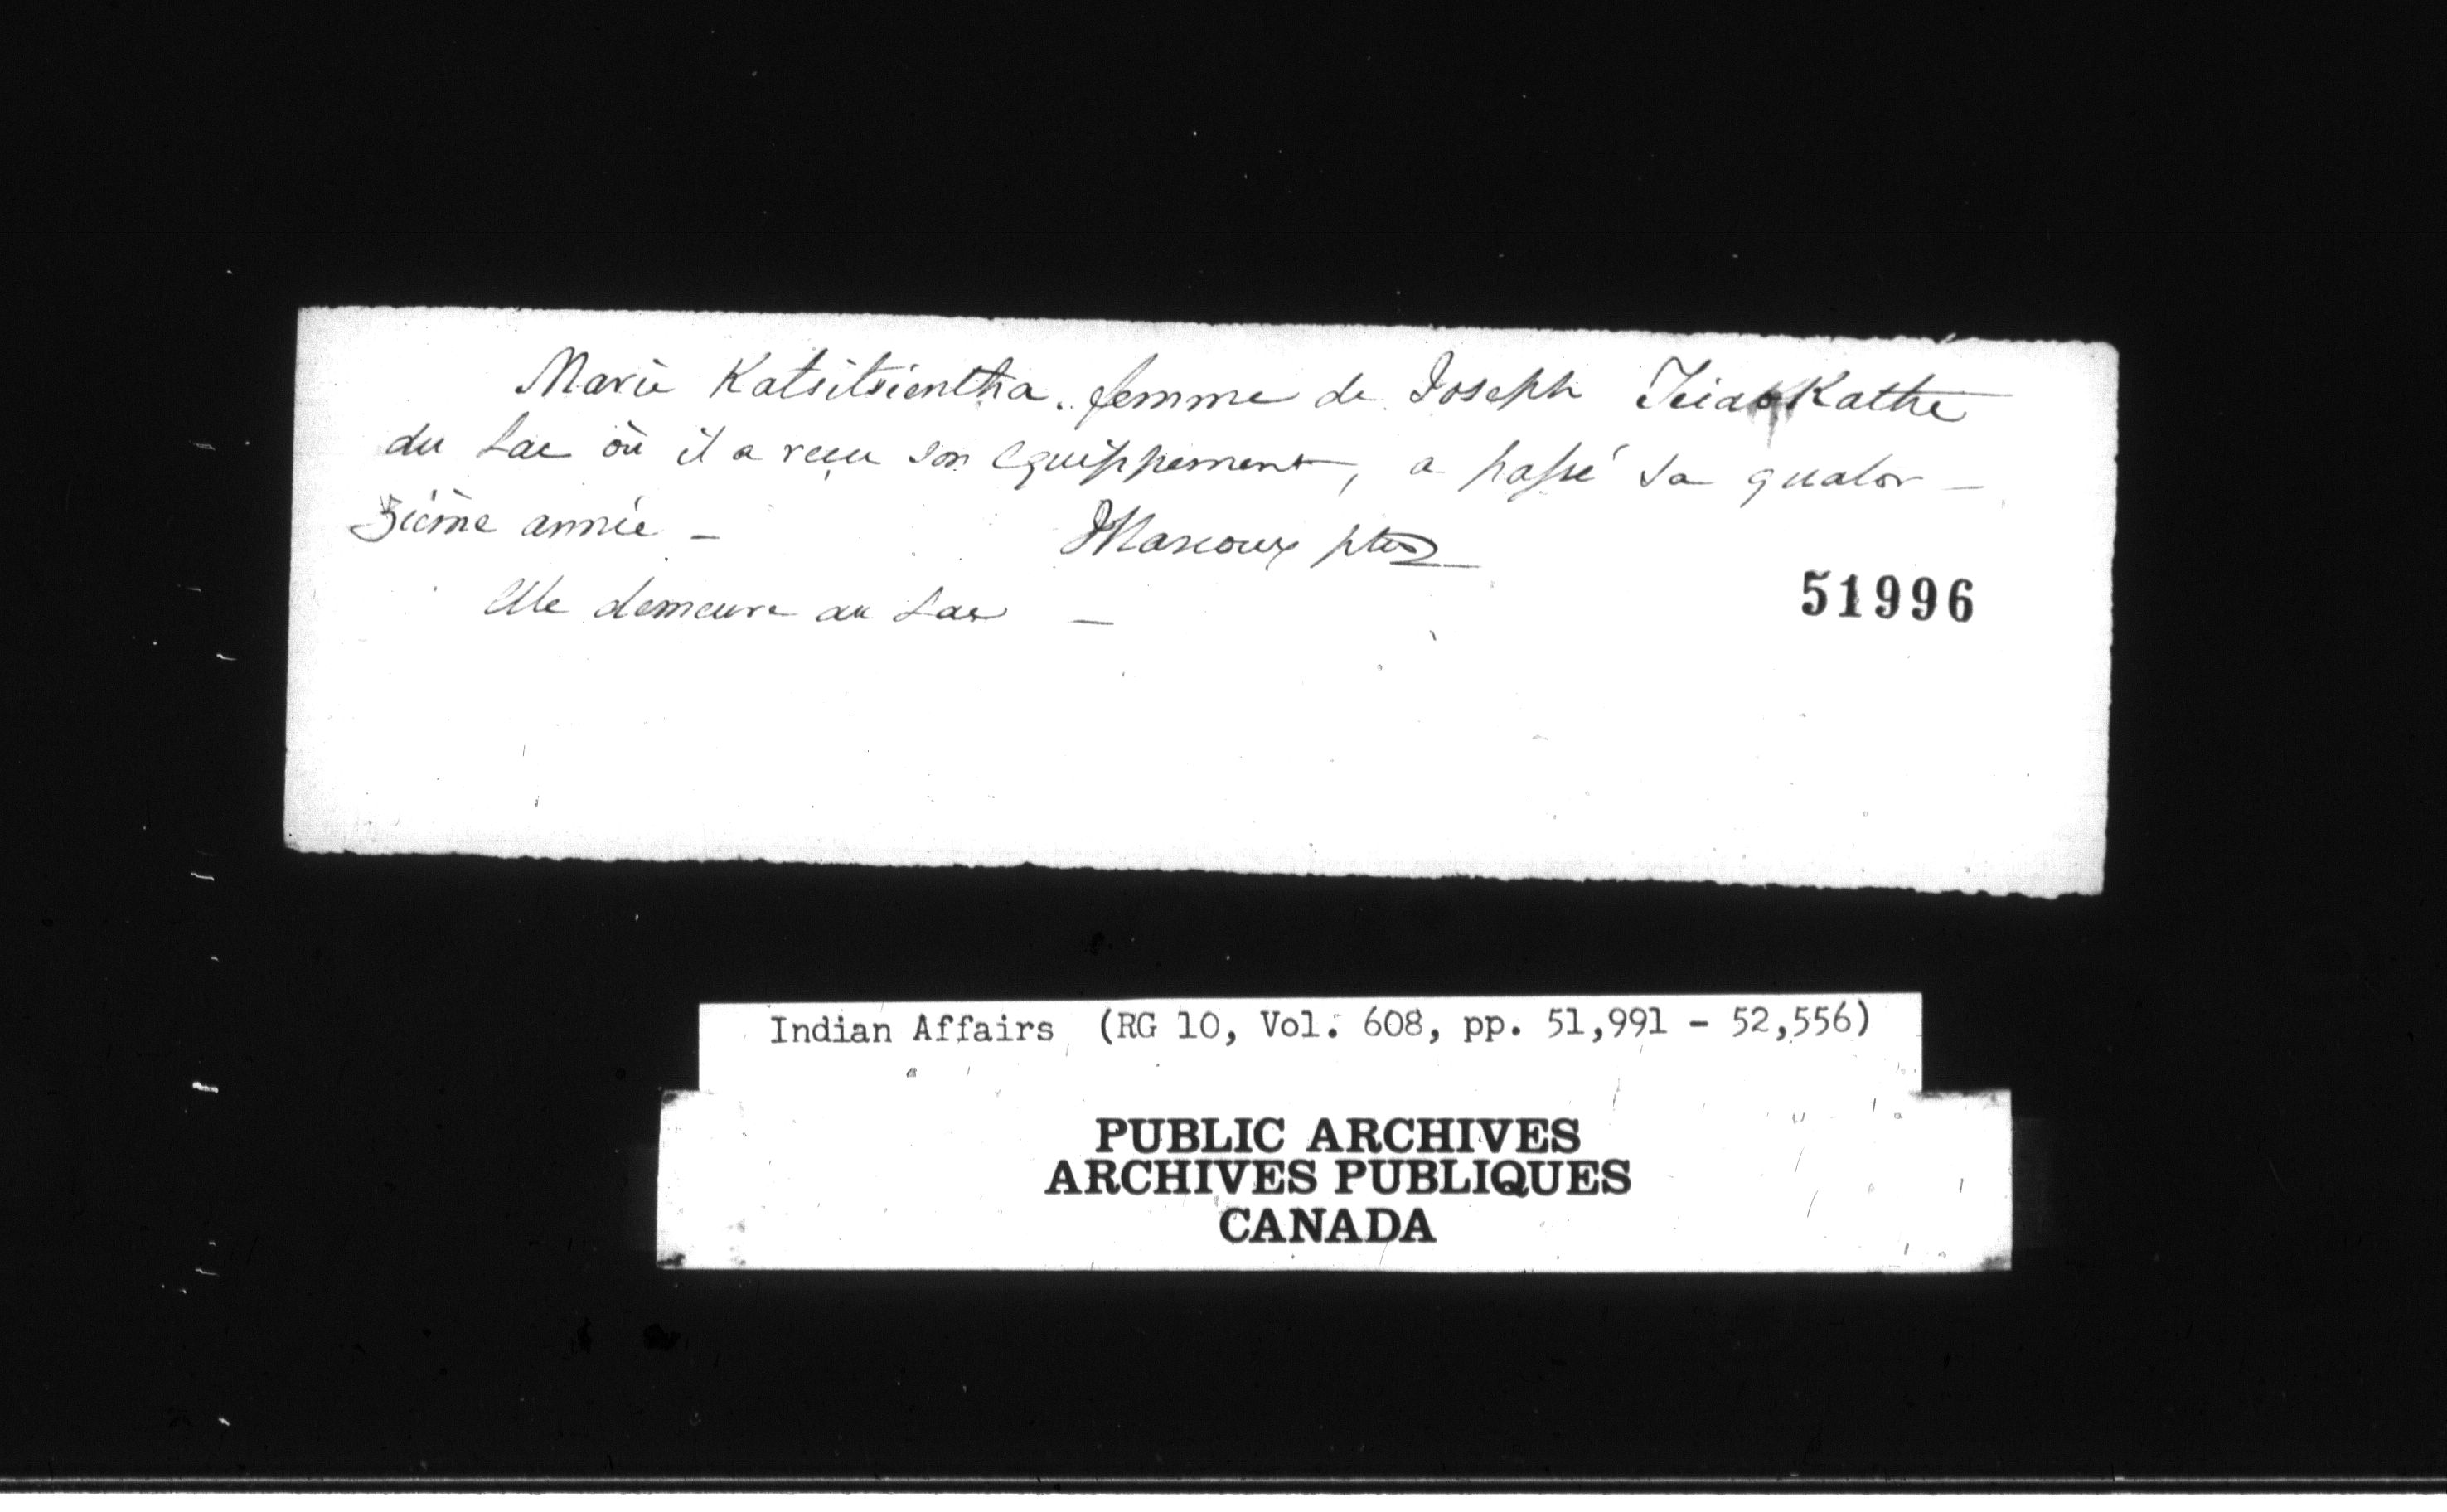 Marie Katsitsientha. femme de Joseph
du Lac où il a reçu son equippement, a passé sa quator-
zième année - JMarcoux ptre
elle demeure au Lac -
51996
Indian Affairs (RG 10, Vol. 608, pp. 51,991 - 52,556)
PUBLIC ARCHIVES
ARCHIVES PUBLIQUES
CANADA